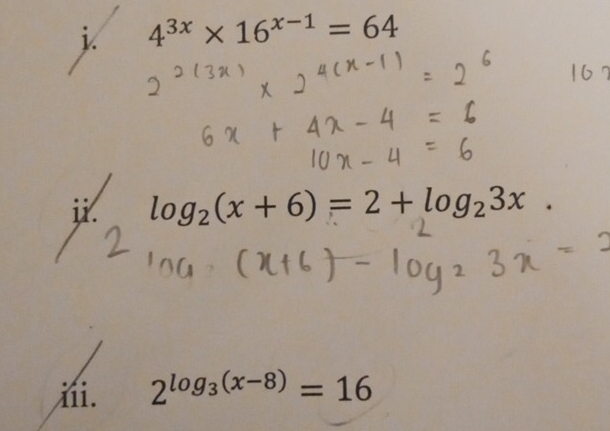 i. 4^{3x} × 16^{x−1} = 64
2^{2(3x)} × 2^{4(x-1)} = 2^6
6x + 4x - 4 = 6
10x - 4 = 6
ii. log₂(x + 6) = 2 + log₂3x .
log₂ (x+6) - log₂ 3x =
iii. 2^{log₃(x−8)} = 16